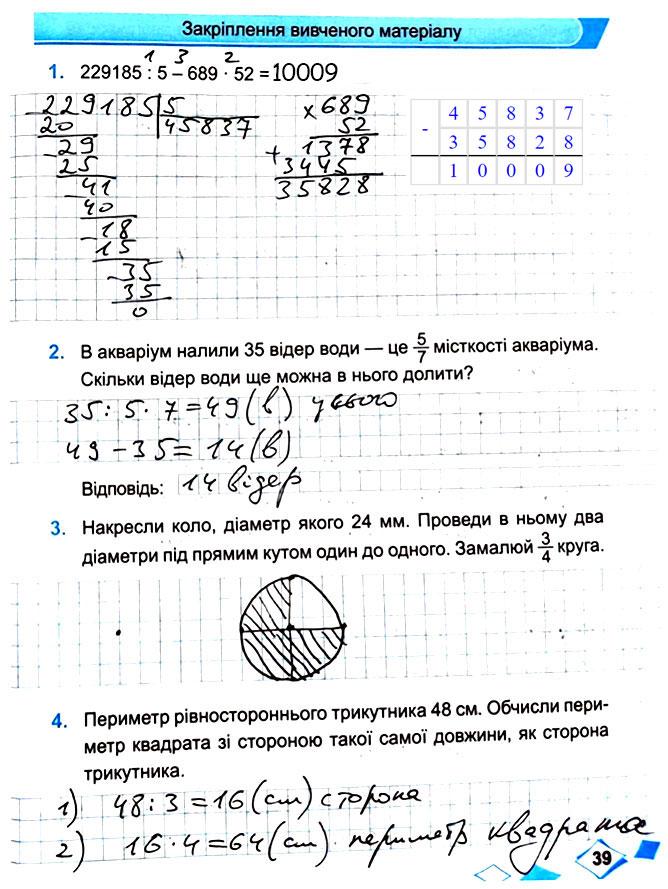 Закріплення вивченого матеріалу
1 3 2
1. 229185 : 5 – 689 · 52 = 10009
229185 5
20 45837
29
25
41
40
18
15
35
35
0
× 689
52
+ 1378
3445
35828
- 4 5 8 3 7
3 5 8 2 8
1 0 0 0 9
2. В акваріум налили 35 відер води — це 5/7 місткості акваріума.
Скільки відер води ще можна в нього долити?
35 : 5 · 7 = 49 (в) усього
49 – 35 = 14 (в)
Відповідь: 14 відер
3. Накресли коло, діаметр якого 24 мм. Проведи в ньому два
діаметри під прямим кутом один до одного. Замалюй 3/4 круга.
4. Периметр рівностороннього трикутника 48 см. Обчисли пери-
метр квадрата зі стороною такої самої довжини, як сторона
трикутника.
1) 48 : 3 = 16 (см) сторона
2) 16 · 4 = 64 (см) периметр квадрата
39